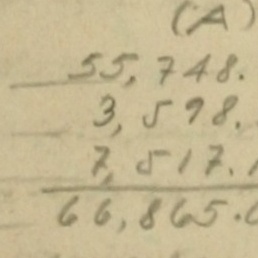 (A)
55,748.
3,598.
7,517.1
66,865.0